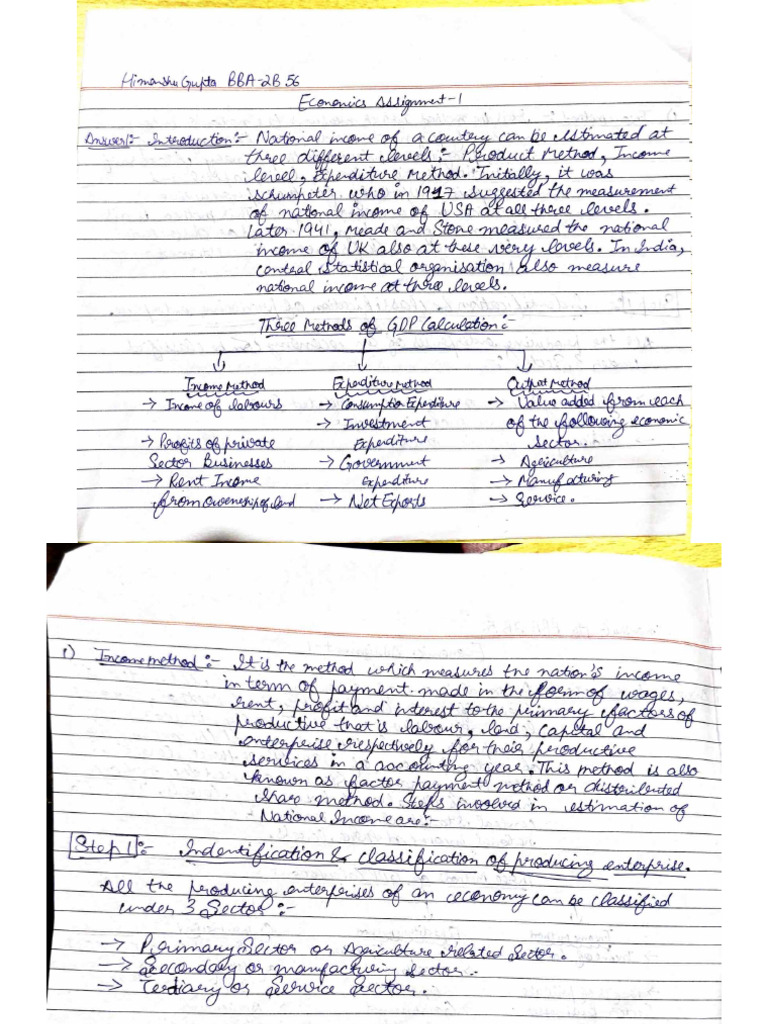 Himanshu Gupta BBA-2B 56
Economics Assignment-1
Answer1:- Introduction:- National income of a country can be estimated at
three different levels:- Product Method, Income
level, Expenditure Method. Initally, it was
schumpeter who in 1927 suggested the measurement
of national income of USA at all three levels.
Later 1941, Meade and Stone measured the national
income of UK also at these very levels. In India,
central statistical organisation also measure
national income at three levels.
Three Methods of GDP Calculation:-
Income Method Expenditure Method Output Method
→ Income of labours → Consumption Expenditure → Value added from each
→ Investment of the following economic
→ Profits of private Expenditure sector.
Sector Businesses → Government → Agriculture
→ Rent Income Expenditure → Manufacturing
from ownership of land → Net Exports → Service.
1) Income method:- It is the method which measures the nation's income
in term of payment made in the form of wages,
rent, profit and interest to the primary factors of
productive that is labour, land, capital and
enterprise respectively for their productive
services in a accounting year. This method is also
known as factor payment method or distributed
share method. Steps involved in estimation of
National Income are:-
Step 1:- Indentification & classification of producing enterprise.
All the producing enterprises of an economy can be classified
under 3 Sector:-
→ Primary Sector or Agriculture related Sector.
→ Secondary or manufacturing sector.
→ Tertiary or Service Sector.